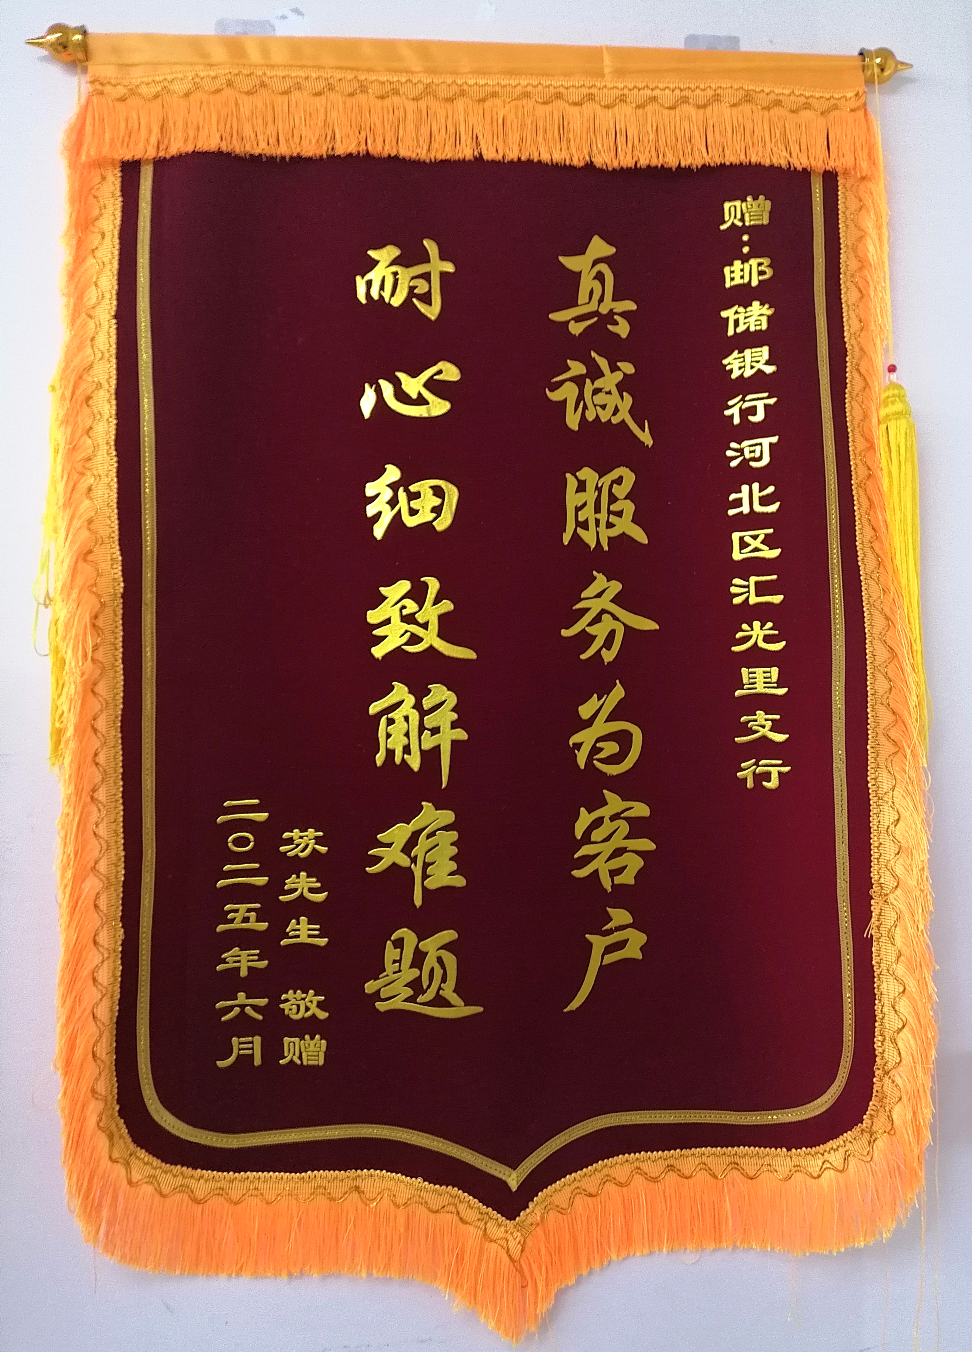 赠：邮储银行河北区汇光里支行
真诚服务为客户
耐心细致解难题
苏先生 敬赠
二〇二五年六月